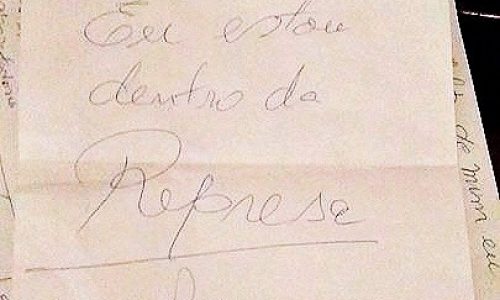 Eu estou
dentro da
Represa
de mim eu